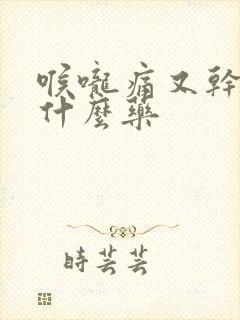 喉嚨痛又幹
什麼藥
時芸芸